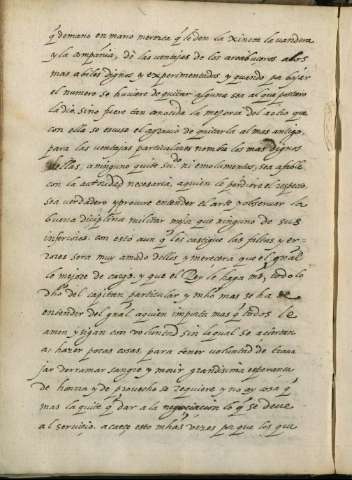 q̃ de mano en mano merezca q̃ le den la xineta la vandera
y la compañia, de las ventajas de los arcabuceros a los
mas abiles dignos y experimentados y quando pa bajar
el numero se huviere de quitar alguna sea al que postrero
la dio. sino fuere tan conocida la mejoria del otro que
con ella se escuse el agravio de quitarla al mas antigo,
para las ventajas particulares nombre los mas dignos
dellas, a ninguno quite su ni emolumentos, sea afable
con la autoridad necesaria, a quien le perdiere el respecto,
sea verdadero y procure entender el arte y observar la
buena disciplina militar mejor que ninguno de sus
inferiores. con esto aun q̃ les castigue las faltas y er-
rores sera muy amado dellos y merecera que el gñal
le mejore de cargo, y que el Rey le haga md, todo lo
dho del capitan particular y mho mas se ha de
entender del gñal a quien importa mas q̃ todos le
amen y sigan con voluntad sin la qual se aciertan
a hazer pocas cosas. para tener voluntad de traba
jar derramar sangre y morir grandissima esperanza
de honrra y de provecho se requiere y no ay cosa q̃
mas la quite q̃ dar a la negociacion lo q̃ se deve
al servicio. acaece esto mhas vezes pr que los que